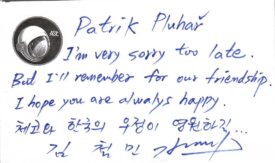 Patrik Pluhař
I'm very sorry too late.
But I'll remember for our friendship.
I hope you are always happy.
체코와 한국의 우정이 영원하길...
김 철 민